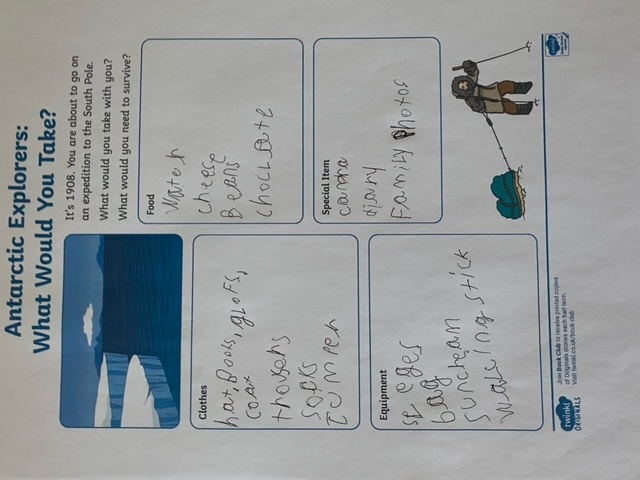 Antarctic Explorers:
What Would You Take?
It's 1908. You are about to go on
an expedition to the South Pole.
What would you take with you?
What would you need to survive?
Food
Water
cheese
Beans
choclate
Clothes
hat, Boots, gloFs,
coat
thousers
Socks
Jumper
Special Item
camra
diary
Family Photos
Equipment
bag
Suncream
Walking stick
twinkl
ORIGINALS
Join Book Club to receive printed copies
of Originals stories each half term.
Visit twinkl.co.uk/book-club